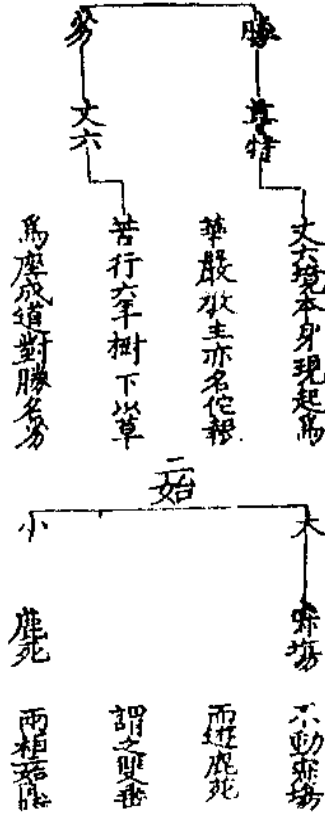 勝
尊特
丈六境本身現起為
華嚴教主亦名他報
劣
丈六
苦行六年樹下以草
為座成道對勝名劣
二始
大
寂場
不動寂場
而遊鹿苑
小
鹿苑
謂之雙垂
兩相始